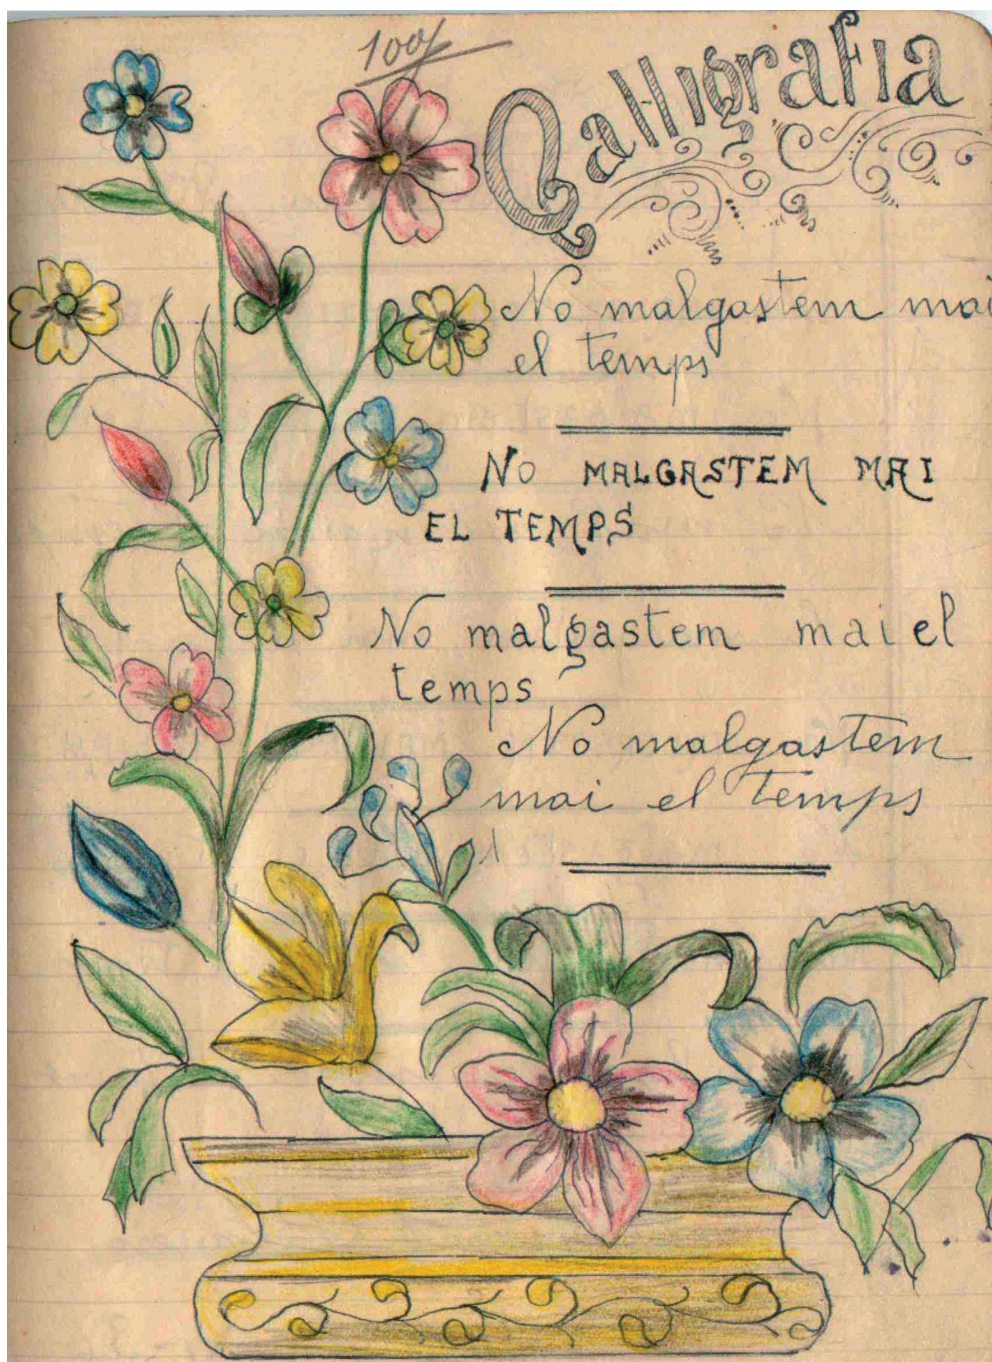 100%
Cal·ligrafia
No malgastem mai
el temps
No MALGASTEM MAI
EL TEMPS
No malgastem mai el
temps
No malgastem
mai el temps